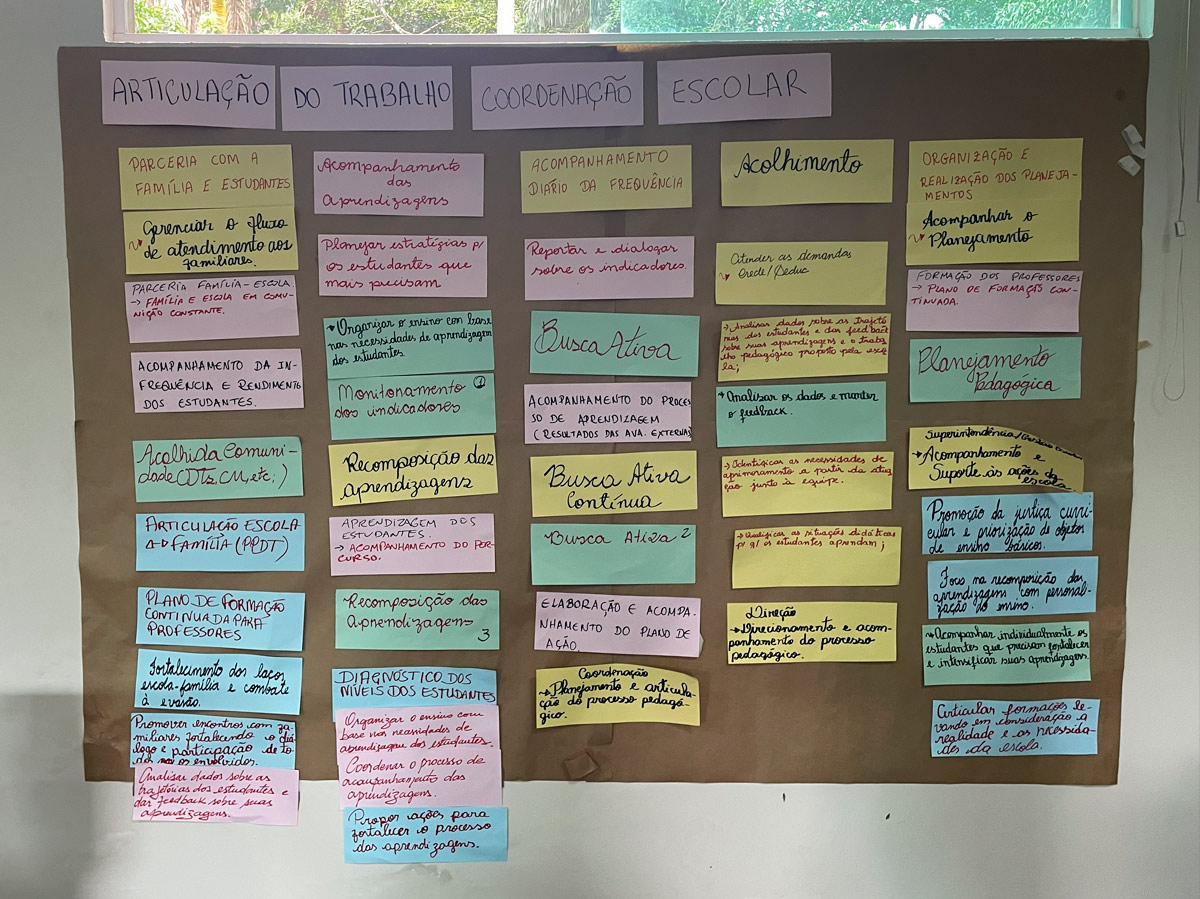 ARTICULAÇÃO DO TRABALHO COORDENAÇÃO ESCOLAR
PARCERIA COM A
FAMÍLIA E ESTUDANTES
Gerenciar o fluxo
de atendimento aos
familiares.
PARCERIA FAMÍLIA-ESCOLA.
→ FAMÍLIA E ESCOLA EM COMU-
NIÇÃO CONSTANTE.
ACOMPANHAMENTO DA IN-
FREQUÊNCIA E RENDIMENTO
DOS ESTUDANTES.
Acolhida Comuni-
dade CDTs, CM, etc.)
ARTICULAÇÃO ESCOLA
FAMÍLIA (PPDT)
PLANO DE FORMAÇÃO
CONTINUADA PARA
PROFESSORES
Fortalecimento dos laços
escola-família e combate
à evasão.
Promover encontros com fa-
miliares fortalecendo o diá-
logo e participação de to-
dos os envolvidos.
Analisar dados sobre as
trajetórias dos estudantes e
dar feedback sobre suas
aprendizagens.
Acompanhamento
das
Aprendizagens
Planejar estratégias p/
os estudantes que
mais precisam
→ Organizar o ensino con base
nas necessidades de aprendizagem
dos estudantes
Monitoramento 1
dos indicadores
Recomposição das
aprendizagens
APRENDIZAGEM DOS
ESTUDANTES.
→ ACOMPANHAMENTO DO PER-
CURSO.
Recomposição das
Aprendizagens
3
DIAGNÓSTICO DOS
NÍVEIS DOS ESTUDANTES
Organizar o ensino com
base nas necessidades de
aprendizagem dos estudantes.
Coordenar o processo de
acompanhamento das
aprendizagens.
Propor ações para
fortalecer o processo
das aprendizagens.
ACOMPANHAMENTO
DIARIO DA FREQUÊNCIA
Reportar e dialogar
sobre os indicadores.
Busca Ativa
ACOMPANHAMENTO DO PROCES
SO DE APRENDIZAGEM
(RESULTADOS DAS AVA. EXTERNAS
Busca Ativa
Contínua
Busca Ativa 2
ELABORAÇÃO E ACOMPA-
NHAMENTO DO PLANO DE
AÇÃO.
Coordenação
→ Planejamento e articula-
ção do processo pedagó-
gico.
Acolhimento
Atender as demandas
Crede/Seduc
→ Analisar dados sobre as trajetó
rias dos estudantes e dar feedback
sobre suas aprendizagens e o traba
lho pedagógico proposto pela esco
la;
→ Analisar os dados e manter
o feedback.
→ Identificar as necessidades de
aprimoramento a partir da atua
ção junto à equipe.
→ Qualificar as situações didáticas
p/ q/ os estudantes aprendam;
Direção
→ Direcionamento e acom-
panhamento do processo
pedagógico.
ORGANIZAÇÃO E
REALIZAÇÃO DOS PLANEJA-
MENTOS
Acompanhar o
Planejamento
FORMAÇÃO DOS PROFESSORES
→ PLANO DE FORMAÇÃO CON-
TINUADA.
Planejamento
Pedagógica
Superintendência/
→ Acompanhamento e
Suporte às ações da
escola
Promoção da justiça curri-
cular e priorização de objetos
de ensino básicos.
Foco na recomposição das
aprendizagens com personali-
zação do ensino.
→ Acompanhar individualmente os
estudantes que precisam fortalecer
e intensificar suas aprendizagens.
Articular formações le-
vando em consideração a
realidade e as necessida-
des da escola.